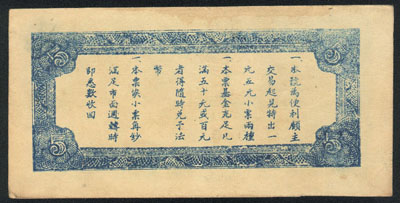 一本號為便利顧主
交易起見特出一
元五元小票兩種
一本票基金充足凡
滿五十元或百元
者得隨時兌予法
幣
一本票係小票再鈔
滿足市面週轉時
即悉數收回
5
5
5
5